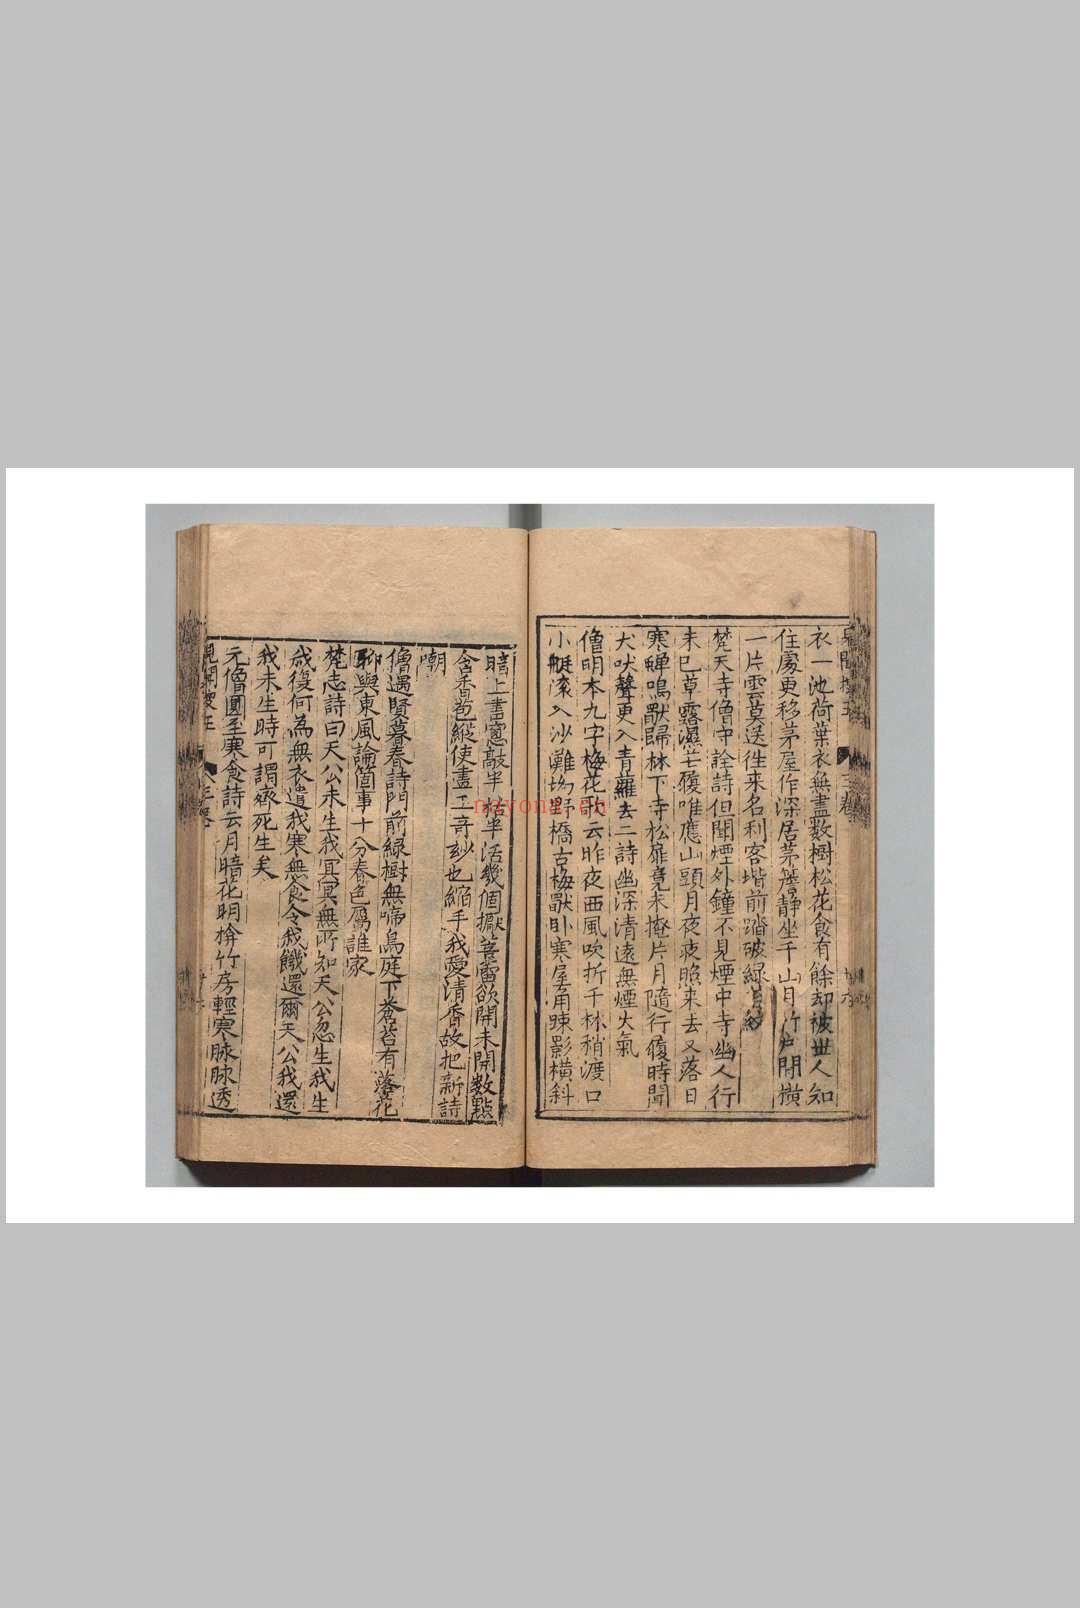 衣一池荷葉衣無盡數樹松花食有餘却被世人知
住處更移茅屋作深居茅簷靜坐千山月竹戶閒横
一片雲莫送徃來名利客堦前踏破綠
梵天寺僧守詮詩但聞煙外鐘不見煙中寺幽人行
未已草露濕芒屨唯應山頭月夜夜照来去又落日
寒蟬鳴獸歸林下寺松扉竟未掩片月隨行屨時聞
犬吠聲更入青蘿去二詩幽深清遠無煙火氣
僧明本九字梅花歌云昨夜西風吹折千林稍渡口
小艇滚入沙灘坳野橋古梅獸卧寒屋角踈影横斜
暗上書窻敲半枯半活幾個擫蓓蕾欲開未開數點
含香苞縱使畫工奇玅也縮手我愛清香故把新詩
嘲
僧遇賢暮春詩門前緑樹無啼鳥庭下蒼苔有落花
聊與東風論箇事十分春色屬誰家
梵志詩曰天公未生我冥冥無所知天公忽生我生
我復何為無衣遣我寒無食令我饑還爾天公我還
我未生時可謂齊死生矣
元僧圓至寒食詩云月暗花明搽竹房輕寒脉脉透
nayona.cn